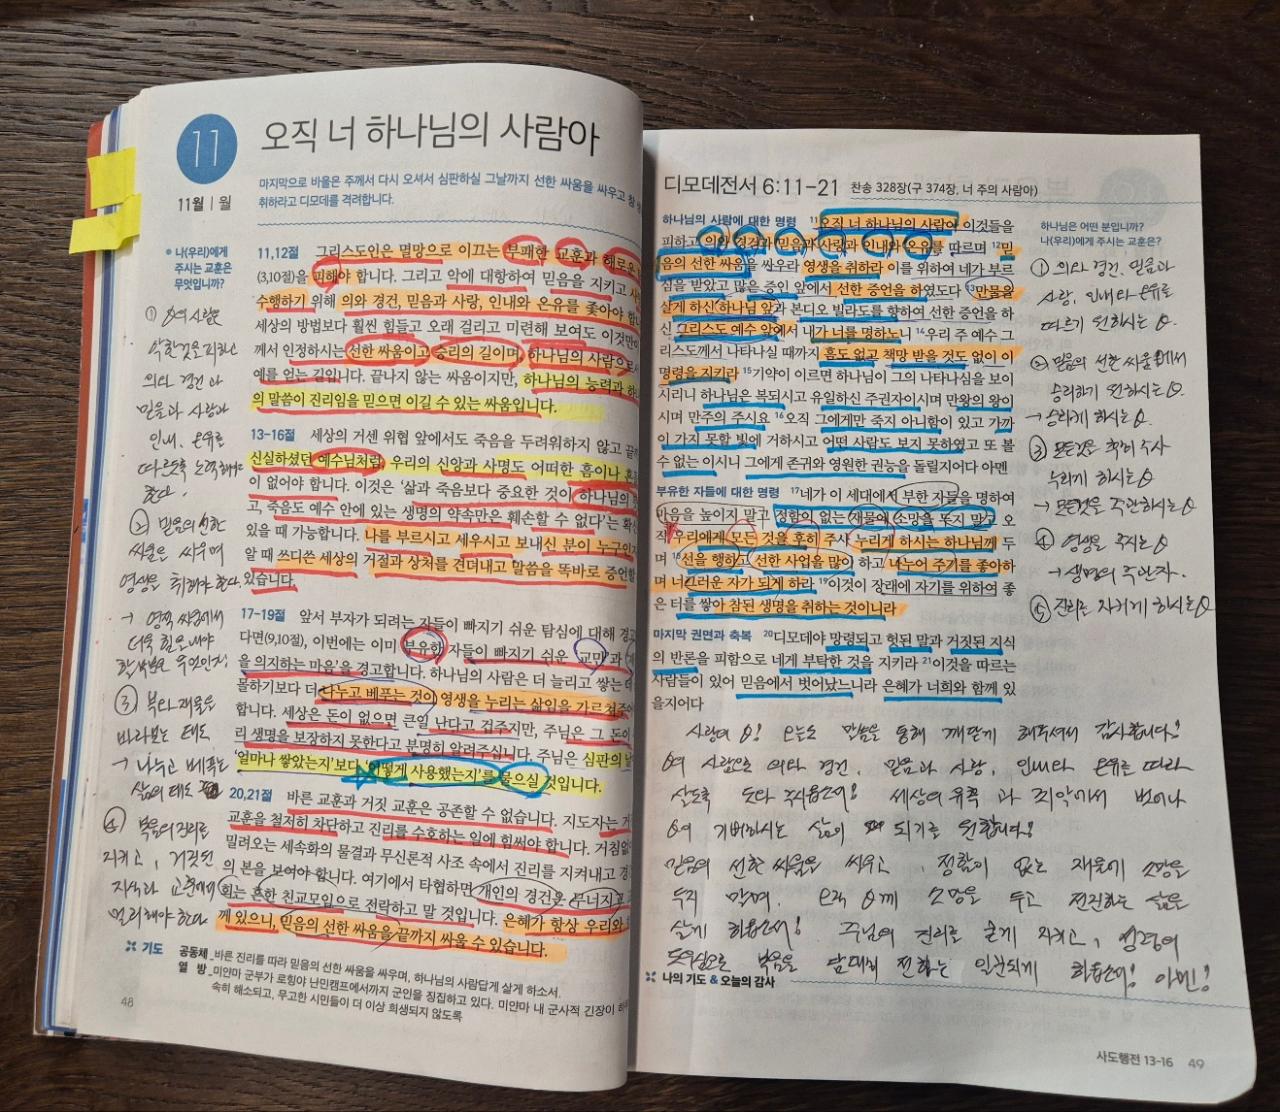 11
11월 | 월
오직 너 하나님의 사람아
마지막으로 바울은 주께서 다시 오셔서 심판하실 그날까지 선한 싸움을 싸우고
취하라고 디모데를 격려합니다.
나(우리)에게
주시는 교훈은
무엇입니까?
① 사람은
악한것은 피하고
의와 경건과
믿음과 사랑과
인내, 온유를
② 믿음의 선한
싸움은 싸우며
영생을 취해야 한다.
→ 영적 싸움에서
더욱 힘을내야
③ 부와 재물을
바라보는 태도
→ 나누고 베푸는
삶의 태도
④ 복음의 진리로
지키고, 거짓된
지식과 교훈에
멀리해야 한다
11,12절 그리스도인은 멸망으로 이끄는 부패한 교훈과 해로운
(3,10절)을 피해야 합니다. 그리고 악에 대항하여 믿음을 지키고
수행하기 위해 의와 경건, 믿음과 사랑, 인내와 온유를 좇아야 합니
세상의 방법보다 훨씬 힘들고 오래 걸리고 미련해 보여도 이것만이
께서 인정하시는 선한 싸움이고 승리의 길이며, 하나님의 사람으로서
예를 얻는 길입니다. 끝나지 않는 싸움이지만, 하나님의 능력과 하나
의 말씀이 진리임을 믿으면 이길 수 있는 싸움입니다.
13-16절 세상의 거센 위협 앞에서도 죽음을 두려워하지 않고 끝
신실하셨던 예수님처럼, 우리의 신앙과 사명도 어떠한 흠이나
이 없어야 합니다. 이것은 '삶과 죽음보다 중요한 것이 하나님의
고, 죽음도 예수 안에 있는 생명의 약속만은 훼손할 수 없다'는 확신
있을 때 가능합니다. 나를 부르시고 세우시고 보내신 분이 누구인지
알 때 쓰디쓴 세상의 거절과 상처를 견뎌내고 말씀을 똑바로 증언할
있습니다.
17-19절 앞서 부자가 되려는 자들이 빠지기 쉬운 탐심에 대해 경고
다면(9,10절), 이번에는 이미 부유한 자들이 빠지기 쉬운 교만과
을 의지하는 마음'을 경고합니다. 하나님의 사람은 더 늘리고 쌓는
몰하기보다 더 나누고 베푸는 것이 영생을 누리는 삶임을 가르쳐주어
합니다. 세상은 돈이 없으면 큰일 난다고 겁주지만, 주님은 그 돈이
리 생명을 보장하지 못한다고 분명히 알려주십니다. 주님은 심판의 날
'얼마나 쌓았는지'보다 '어떻게 사용했는지'를 물으실 것입니다.
20,21절 바른 교훈과 거짓 교훈은 공존할 수 없습니다. 지도자는 거
교훈을 철저히 차단하고 진리를 수호하는 일에 힘써야 합니다. 거침없이
밀려오는 세속화의 물결과 무신론적 사조 속에서 진리를 지켜내고
의 본을 보여야 합니다. 여기에서 타협하면 개인의 경건은 무너지고
회는 흔한 친교모임으로 전락하고 말 것입니다. 은혜가 항상 우리와
께 있으니, 믿음의 선한 싸움을 끝까지 싸울 수 있습니다.
기도
공동체_바른 진리를 따라 믿음의 선한 싸움을 싸우며, 하나님의 사람답게 살게 하소서.
열 방_미얀마 군부가 로힝야 난민캠프에서까지 군인을 징집하고 있다. 미얀마 내 군사적 긴장이
속히 해소되고, 무고한 시민들이 더 이상 희생되지 않도록
48
디모데전서 6:11-21 찬송 328장(구 374장, 너 주의 사람아)
하나님의 사람에 대한 명령 11오직 너 하나님의 사람아 이것들을
피하고 의와 경건과 믿음과 사랑과 인내와 온유를 따르며 12믿
음의 선한 싸움을 싸우라 영생을 취하라 이를 위하여 네가 부르
심을 받았고 많은 증인 앞에서 선한 증언을 하였도다 13만물을
살게 하신 하나님 앞과 본디오 빌라도를 향하여 선한 증언을 하
신 그리스도 예수 앞에서 내가 너를 명하노니 14우리 주 예수 그
리스도께서 나타나실 때까지 흠도 없고 책망 받을 것도 없이 이
명령을 지키라 15기약이 이르면 하나님이 그의 나타나심을 보이
시리니 하나님은 복되시고 유일하신 주권자이시며 만왕의 왕이
시며 만주의 주시요 16오직 그에게만 죽지 아니함이 있고 가까
이 가지 못할 빛에 거하시고 어떤 사람도 보지 못하였고 또 볼
수 없는 이시니 그에게 존귀와 영원한 권능을 돌릴지어다 아멘
부유한 자들에 대한 명령 17네가 이 세대에서 부한 자들을 명하여
마음을 높이지 말고 정함이 없는 재물에 소망을 두지 말고 오
직 우리에게 모든 것을 후히 주사 누리게 하시는 하나님께 두
며 18선을 행하고 선한 사업을 많이 하고 나누어 주기를 좋아하
며 너그러운 자가 되게 하라 19이것이 장래에 자기를 위하여 좋
은 터를 쌓아 참된 생명을 취하는 것이니라
마지막 권면과 축복 20디모데야 망령되고 헛된 말과 거짓된 지식
의 반론을 피함으로 네게 부탁한 것을 지키라 21이것을 따르는
사람들이 있어 믿음에서 벗어났느니라 은혜가 너희와 함께 있
을지어다
하나님은 어떤 분입니까?
나(우리)에게 주시는 교훈은?
① 의와 경건. 믿음과
사랑, 인내와 온유로
따르기 원하시는
② 믿음의 선한 싸움에서
승리하기 원하시는
→ 승리케 하시는
③ 모든것을 후히 주사
누리게 하시는
→ 모든것을 주관하시는
④ 영생을 주시는
→ 생명의 주관자.
⑤ 진리를 지키게 하시는
사랑의 오늘도 말씀을 통해 깨닫게 해주셔서 감사합니다!
사람으로 의와 경건, 믿음과 사랑, 인내와 온유를 따라
살도록 도와 주시옵소서! 세상의 유혹과 죄악에서 벗어나
기뻐하시는 삶이 되기를 원합니다!
믿음의 선한 싸움을 싸우고, 정함이 없는 재물에 소망을
두지 말며, 오직 께 소망을 두고 전진하는 삶을
살게 하옵소서! 주님의 진리로 굳게 지키고, 성령의
도우심으로 복음을 담대히 전하는 일꾼되게 하옵소서! 아멘!
나의 기도 & 오늘의 감사
사도행전 13-16 49